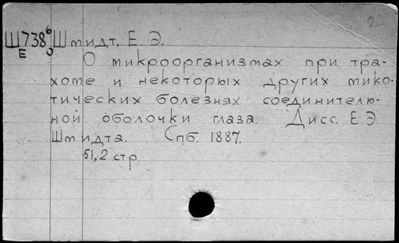 Ш738 Шмидт. Е. Э.
Е
О микроорганизмах при тра-
хоме и некоторых других мико-
тических болезнях соединитель-
ной оболочки глаза. Дисс. Е. Э.
Шмидта. Спб. 1887.
51,2 стр.